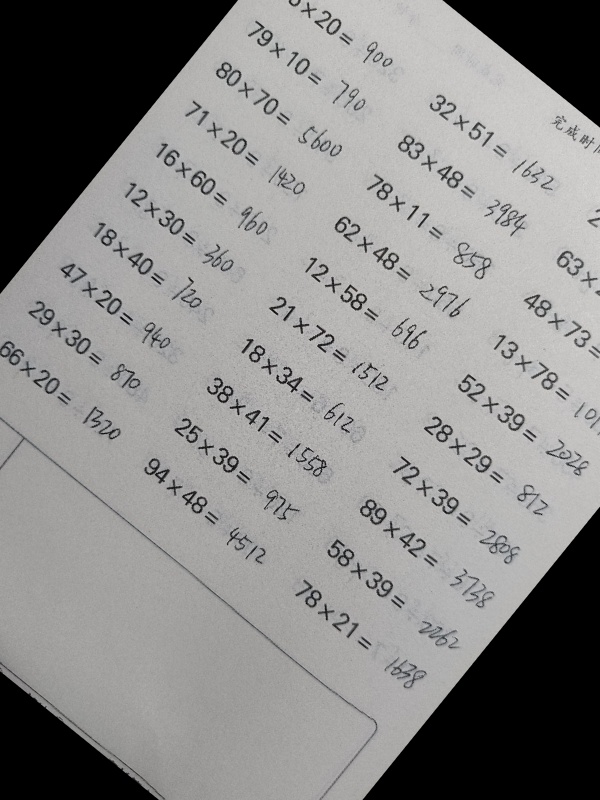 ×20= 900
79×10= 790
80×70= 5600
71×20= 1420
16×60= 960
12×30= 360
18×40= 720
47×20= 940
29×30= 870
66×20= 1320
32×51= 1632
83×48= 3984
78×11= 858
62×48= 2976
12×58= 696
21×72= 1512
18×34= 612
38×41= 1558
25×39= 975
94×48= 4512
完成时
63×
48×73=
13×78= 101
52×39= 2028
28×29= 812
72×39= 2808
89×42= 3738
58×39= 2262
78×21= 1638